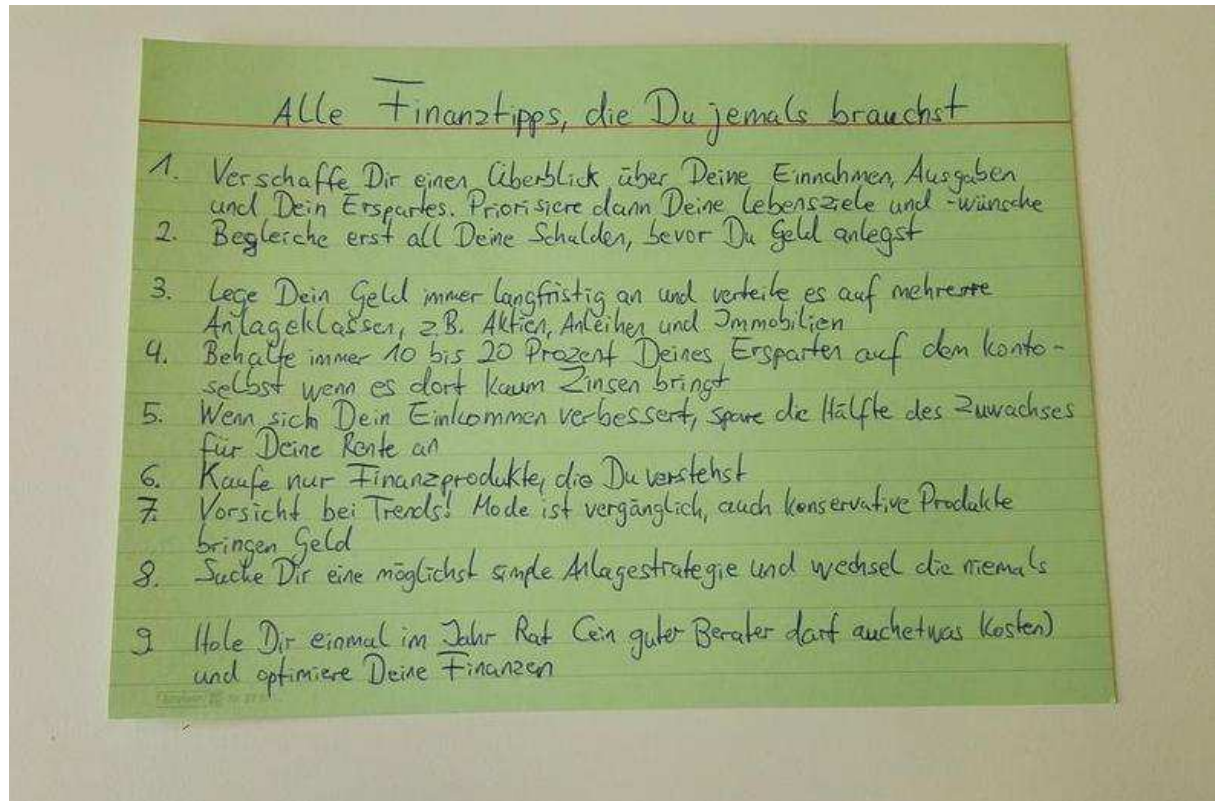 Alle Finanztipps, die Du jemals brauchst
1. Verschaffe Dir einen Überblick über Deine Einnahmen, Ausgaben
und Dein Erspartes. Priorisiere dann Deine Lebensziele und -wünsche
2. Begleiche erst all Deine Schulden, bevor Du Geld anlegst
3. Lege Dein Geld immer langfristig an und verteile es auf mehrere
Anlageklassen, z.B. Aktien, Anleihen und Immobilien
4. Behalte immer 10 bis 20 Prozent Deines Ersparten auf dem Konto -
selbst wenn es dort kaum Zinsen bringt
5. Wenn sich Dein Einkommen verbessert, spare die Hälfte des Zuwachses
für Deine Rente an
6. Kaufe nur Finanzprodukte, die Du verstehst
7. Vorsicht bei Trends! Mode ist vergänglich, auch konservative Produkte
bringen Geld
8. Suche Dir eine möglichst simple Anlagestrategie und wechsel die niemals
9 Hole Dir einmal im Jahr Rat (ein guter Berater darf auch etwas kosten)
und optimiere Deine Finanzen